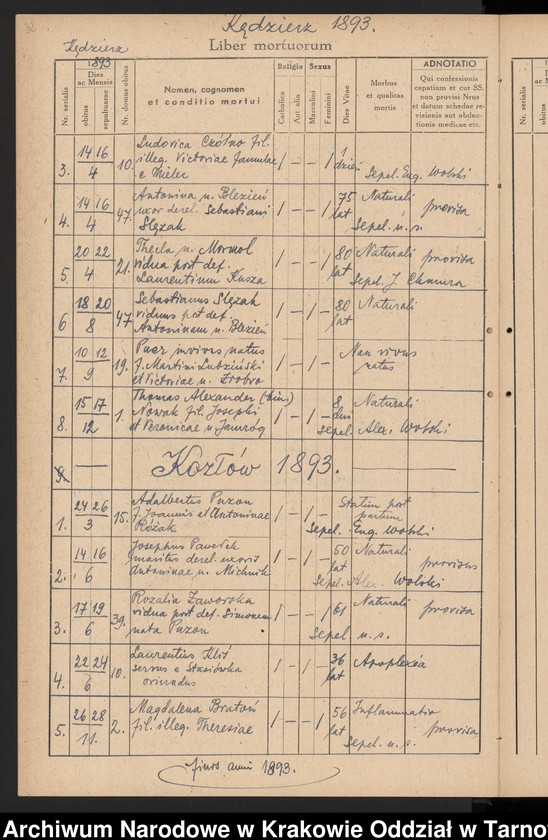 Kędzierz 1893.
Kędzierz
Liber mortuorum
1893
Nr. serialis
Dies
ac Mensis
obitus
sepulturae
Nr. domus obitus
Nomen, cognomen
et conditio mortui
Religio
Catholica
Aut alia
Sexus
Masculini
Feminini
Dies Vitae
Morbus
et qualitas
mortis
ADNOTATIO
Qui confessionis
capatium et cur SS.
non provisi Nrus
et datum schedae re-
visionis aut obduc-
tionis medicae etc.
3. 14 16 / 4 10. Ludovica Czółno fil. 1 — — 1 1
illeg. Victoriae famulae dzień
e Mielec Sepel. Eug. Wolski
4. 14 16 / 4 47. Antonina n. Blezień 1 — — 1 75 Naturali provisa
uxor derel. Sebastiani lat
Slęzak Sepel. u. s.
5. 20 22 / 4 21. Thecla n. Mormol 1 — — 1 80 Naturali provisa
vidua post def. lat
Laurentium Kusza Sepel. J. Chmura
6 18 20 / 8 47 Sebastianus Slęzak 1 — 1 — 80 Naturali
viduus post def. lat
Antoninam n. Blezień
7. 10 12 / 9 19. Puer nvivus natus 1 — 1 — Non vivus
f. Martini Lubziński natus
et Victoriae n. Zrobro
8. 15 17 / 12 1. Thomas Alexander (bini) 1 — 1 — 8 Naturali
Nowak fil. Josephi dni
et Veronicae n. Jamróg sepel. Alex. Wolski
9 — Kozłów 1893. —
1. 24 26 / 3 15. Adalbertus Pazon 1 — 1 — Statim post
f. Joannis et Antoninae partum
Różak Sepel. Eug. Wolski
2. 14 16 / 6 Josephus Pawełek 1 — 1 — 50 Naturali provisus
maritus derel. uxoris lat
Antoninae n. Michnik Sepel. Alex. Wolski
3. 17 19 / 6 39. Rozalia Zaworska 1 — — 1 61 Naturali provisa
vidua post def. Simonem
nata Pazon Sepel u. s.
4. 22 24 / 6 10. Laurentius Klis 1 — 1 — 36 Apoplexia
servus e Stasiówka lat
oriundus
5. 26 28 / 11. 2. Magdalena Bratoń 1 — — 1 56 Inflammatio provisa
fil. illeg. Theresiae lat
Sepel. u. s.
finis anni 1893.
Nr. serialis
Archiwum Narodowe w Krakowie Oddział w Tarno